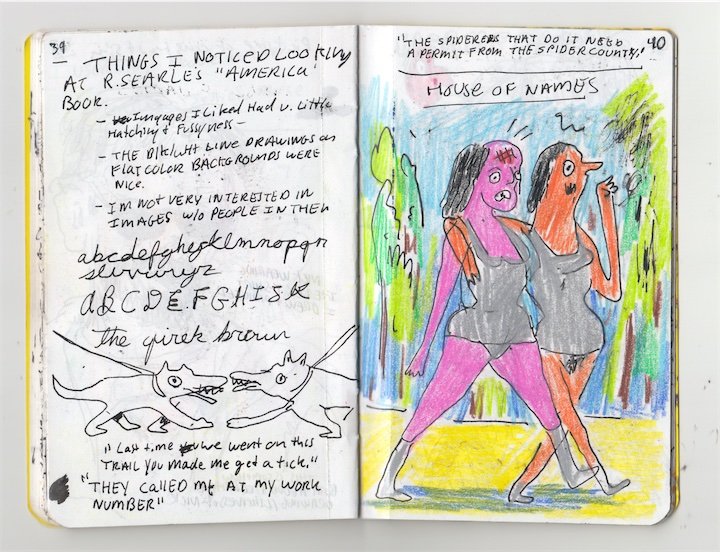 39
THINGS I NOTICED LOOKING
AT R. SEARLE'S "AMERICA'
BOOK.
- Imgages I Liked Had v. Little
Hatching & Fussyness -
- THE Blk/wht LINE DRAWINGS on
FLAT COLOR BACKGROUNDS WERE
NICE.
- I'M NOT VERY INTERESTED IN
IMAGES w/o PEOPLE IN THEM
abcdefghijklmnopqr
stuvwxyz
ABCDEFGHIJK
the quick brown
"Last time we went on this
TRAIL you made me get a tick."
"THEY CALLED ME AT MY WORK
NUMBER"
40
"THE SPIDERERS THAT DO IT NEED
A PERMIT FROM THE SPIDER COUNTY."
HOUSE OF NAMES